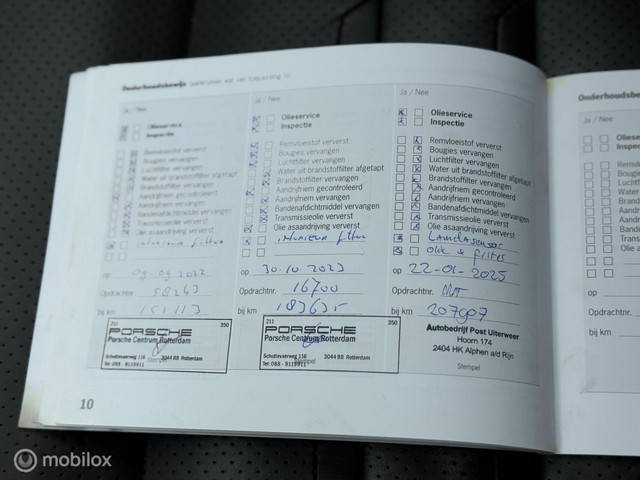 Onderhoudsbewijs (aankruisen wat van toepassing is)
Ja / Nee
Olieservice
Inspectie
Remvloeistof ververst
Bougies vervangen
Luchtfilter vervangen
Water uit brandstoffilter afgetapt
Brandstoffilter vervangen
Aandrijfriem gecontroleerd
Aandrijfriem vervangen
Bandenafdichtmiddel vervangen
Transmissieolie ververst
Olie asaandrijving ververst
interieur filter
op 09-09-2022
Opdrachtnr. 58243
bij km 151113
211 350
PORSCHE
Porsche Centrum Rotterdam
Schuttevaerweg 116 3044 BB Rotterdam
Tel: 088 - 9119911
Stempel
Ja / Nee
Olieservice
Inspectie
Remvloeistof ververst
Bougies vervangen
Luchtfilter vervangen
Water uit brandstoffilter afgetapt
Brandstoffilter vervangen
Aandrijfriem gecontroleerd
Aandrijfriem vervangen
Bandenafdichtmiddel vervangen
Transmissieolie ververst
Olie asaandrijving ververst
interieur filter
op 30.10.2023
Opdrachtnr. 16700
bij km 183635
211 350
PORSCHE
Porsche Centrum Rotterdam
Schuttevaerweg 116 3044 BB Rotterdam
Tel: 088 - 9119911
Stempel
Ja / Nee
Olieservice
Inspectie
Remvloeistof ververst
Bougies vervangen
Luchtfilter vervangen
Water uit brandstoffilter afgetapt
Brandstoffilter vervangen
Aandrijfriem gecontroleerd
Aandrijfriem vervangen
Bandenafdichtmiddel vervangen
Transmissieolie ververst
Olie asaandrijving ververst
Lamdasensor
Olie & filter
op 22-01-2025
Opdrachtnr.
bij km 207907
Autobedrijf Post Uiterweer
Hoorn 174
2404 HK Alphen a/d Rijn
Stempel
10
Onderhoudsbe
Ja / Nee
op
Opdrachtnr.
bij km
mobilox